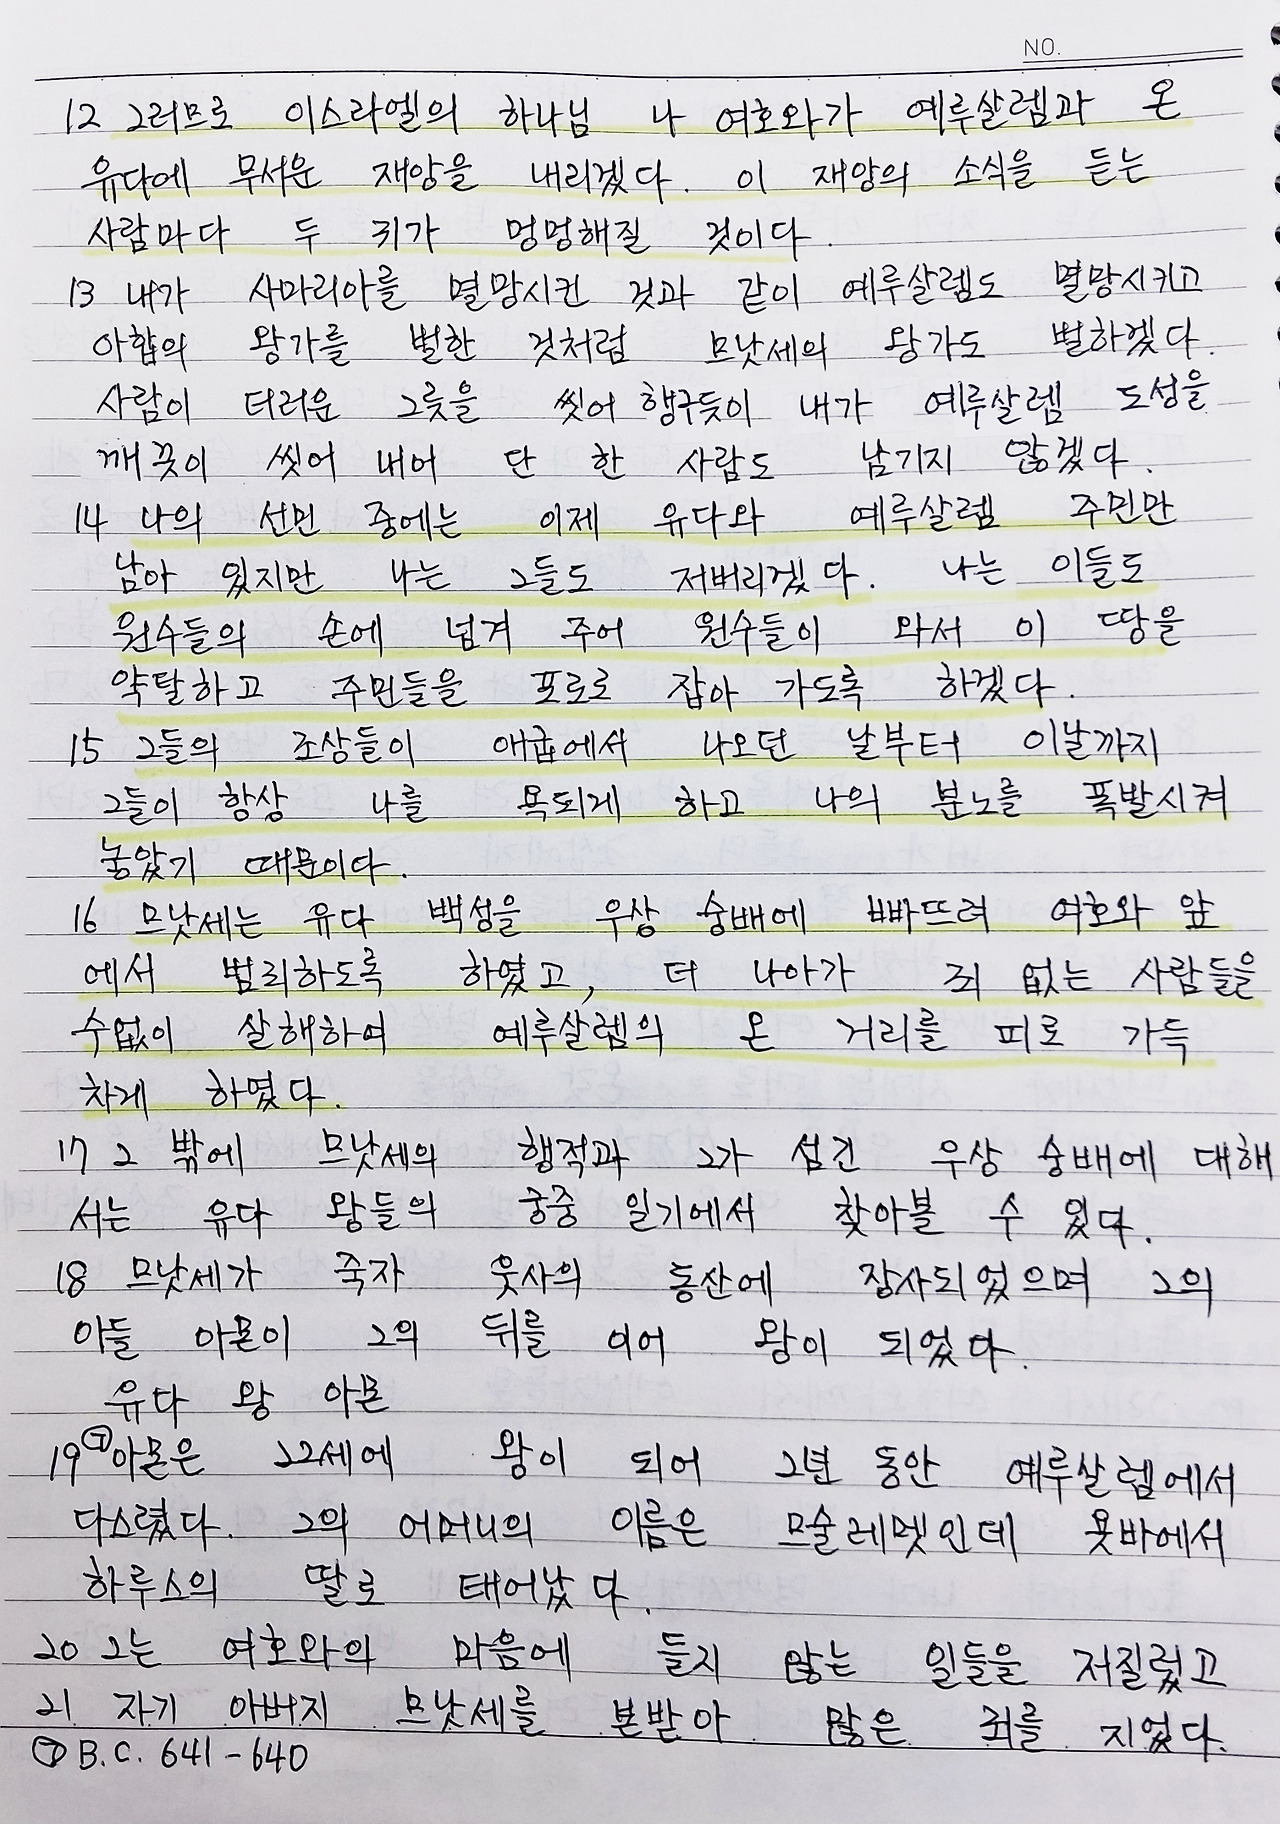 NO.
12 그러므로 이스라엘의 하나님 나 여호와가 예루살렘과 온
유다에 무서운 재앙을 내리겠다. 이 재앙의 소식을 듣는
사람마다 두 귀가 멍멍해질 것이다.
13 내가 사마리아를 멸망시킨 것과 같이 예루살렘도 멸망시키고
아합의 왕가를 벌한 것처럼 므낫세의 왕가도 벌하겠다.
사람이 더러운 그릇을 씻어 헹구듯이 내가 예루살렘 도성을
깨끗이 씻어 내어 단 한 사람도 남기지 않겠다.
14 나의 선민 중에는 이제 유다와 예루살렘 주민만
남아 있지만 나는 그들도 저버리겠다. 나는 이들도
원수들의 손에 넘겨 주어 원수들이 와서 이 땅을
약탈하고 주민들을 포로로 잡아 가도록 하겠다.
15 그들의 조상들이 애굽에서 나오던 날부터 이날까지
그들이 항상 나를 욕되게 하고 나의 분노를 폭발시켜
놓았기 때문이다.
16 므낫세는 유다 백성을 우상 숭배에 빠뜨려 여호와 앞
에서 범죄하도록 하였고, 더 나아가 죄 없는 사람들을
수없이 살해하여 예루살렘의 온 거리를 피로 가득
차게 하였다.
17 그 밖에 므낫세의 행적과 그가 섬긴 우상 숭배에 대해
서는 유다 왕들의 궁중 일기에서 찾아볼 수 있다.
18 므낫세가 죽자 웃사의 동산에 장사되었으며 그의
아들 아몬이 그의 뒤를 이어 왕이 되었다.
유다 왕 아몬
19 ㉠아몬은 22세에 왕이 되어 2년 동안 예루살렘에서
다스렸다. 그의 어머니의 이름은 므술레멧인데 욧바에서
하루스의 딸로 태어났다.
20 그는 여호와의 마음에 들지 않는 일들을 저질렀고
21 자기 아버지 므낫세를 본받아 많은 죄를 지었다.
㉠ B.C. 641-640